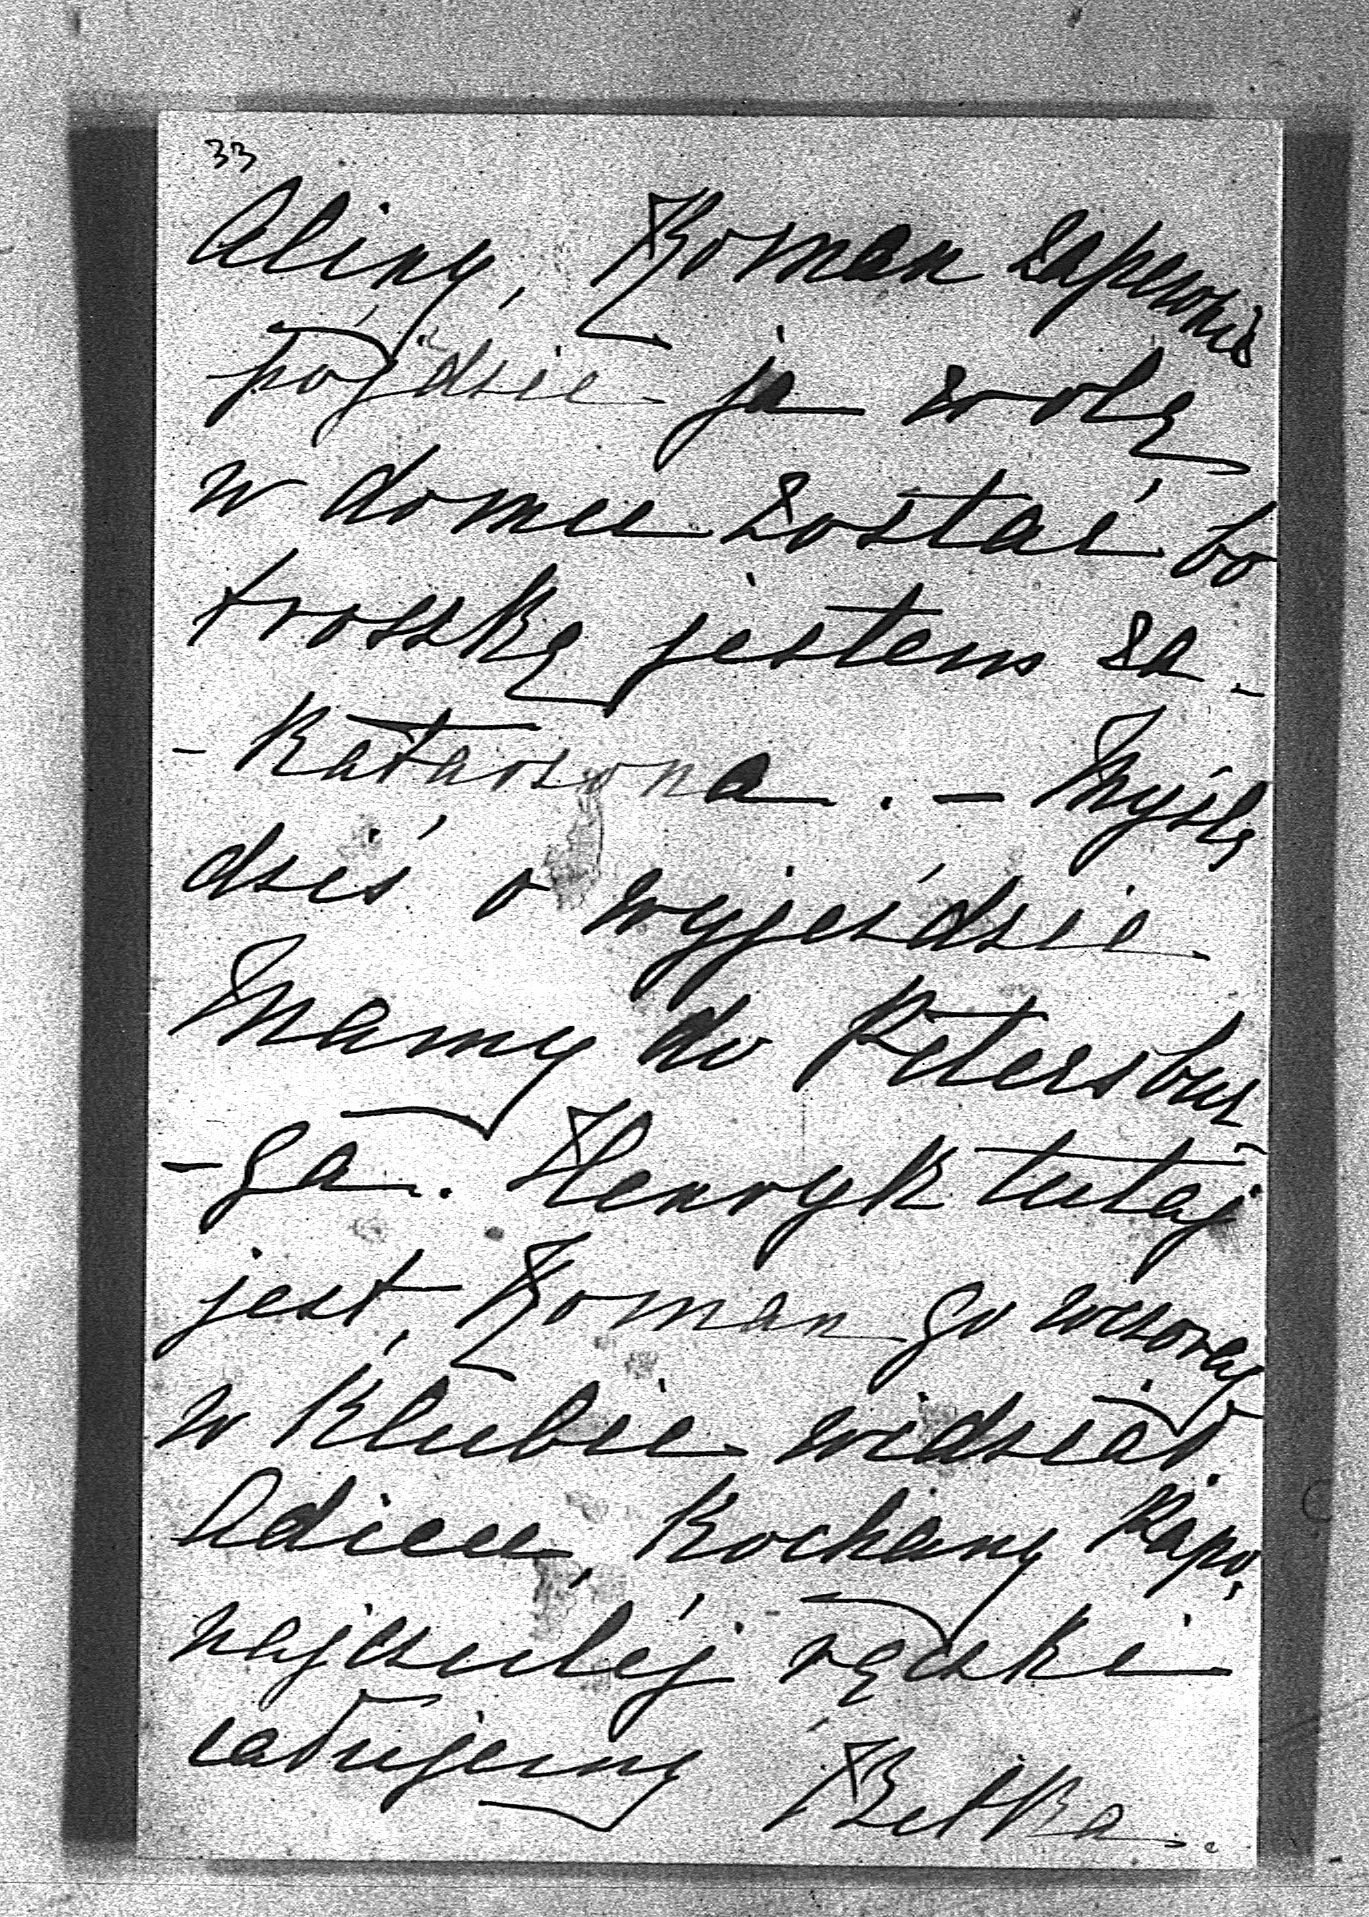 33
Aliny, Roman zapewnie
pójdzie ja wolę
w domu zostać bo
troszkę jestem za-
-katarzona. — Myślę
dziś o wyjeździe
Mamy do Petersbur-
-ga. Henryk tutaj
jest, Roman go wczoraj
w klubie widział.
Adieu, kochany Papo,
najczulej rączki
całujemy Betka.